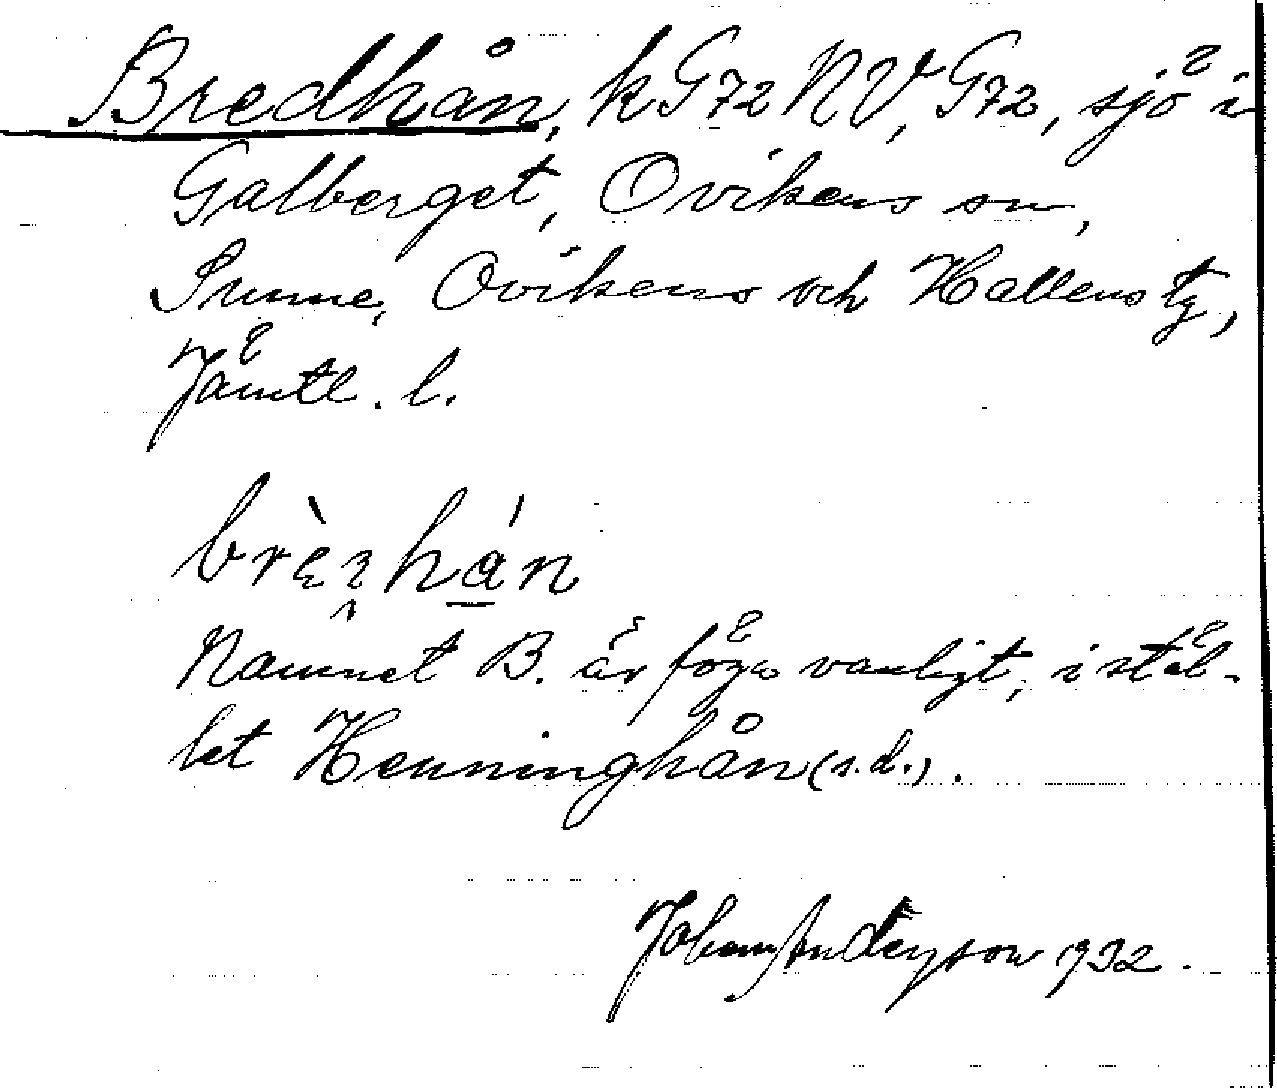 Bredhån, k G72 NV, G72, sjö i
Galberget, Ovikens sn,
Sunne, Ovikens och Hallens tg,
Jämtl. l.
Namnet B. är föga vanligt, i stäl-
let Henninghån (s.d.).
Johan Anderson 1932.